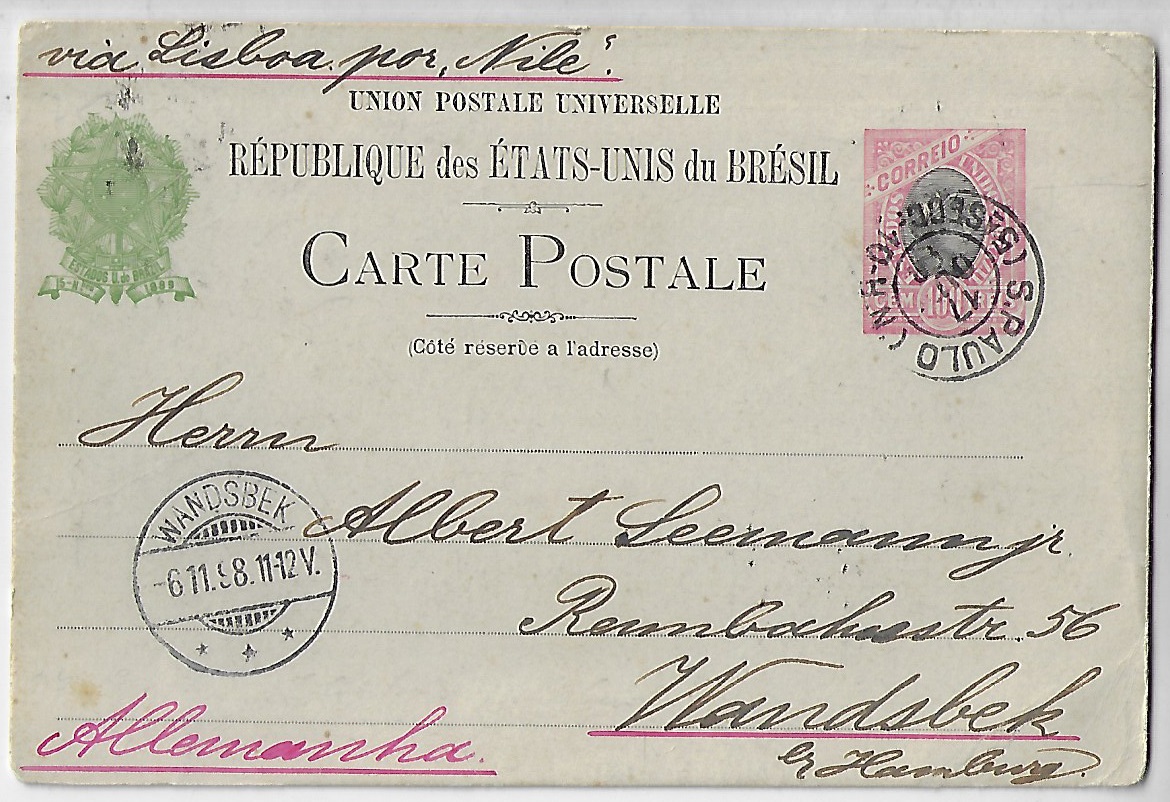 via Lisboa por „Nile“.
UNION POSTALE UNIVERSELLE
RÉPUBLIQUE des ÉTATS-UNIS du BRÉSIL
CARTE POSTALE
(Côté réservé a l'adresse)
ESTADOS U. do BRAZIL
15-N 1889
CORREIO
CEM 100 REIS
S. PAULO
17
Herrn
Albert Seemann jr.
56
Wandsbek
Hamburg.
WANDSBEK
-6.11.98.11-12V.
Allemanha.